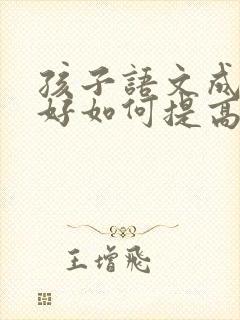 孩子語文成
好如何提高
王增飛